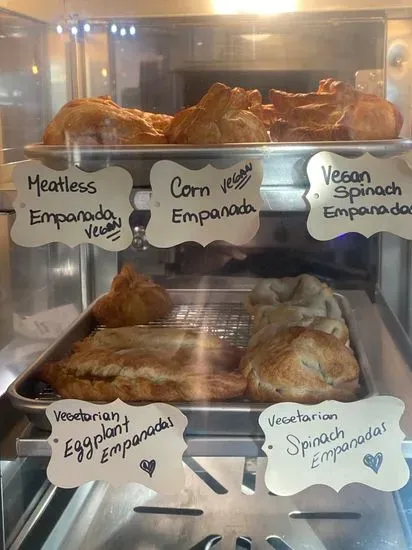 Meatless
Empanada
vegan
Corn vegan
Empanada
Vegan
Spinach
Empanadas
Vegetarian
Eggplant
Empanadas
Vegetarian
Spinach
Empanadas